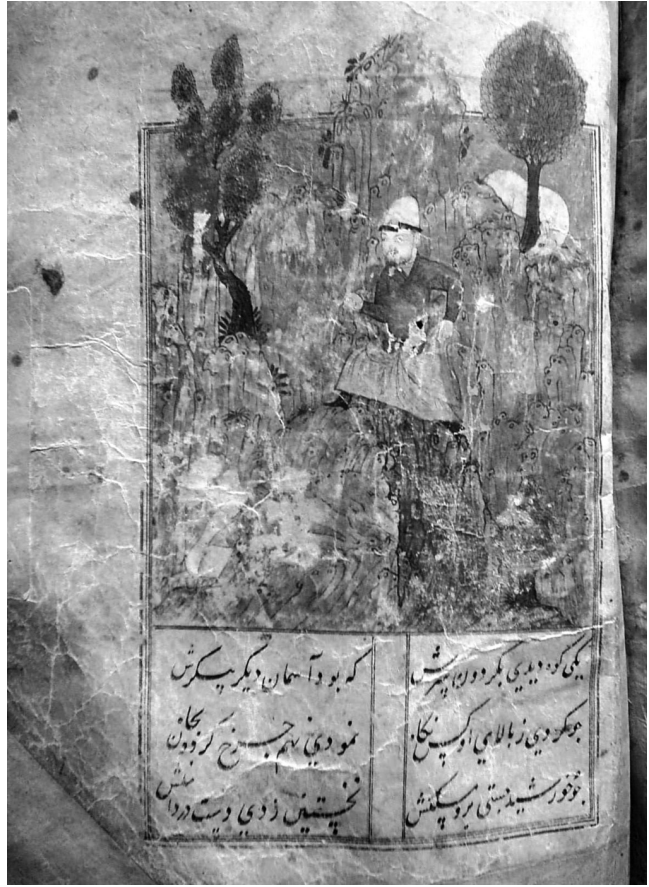 یکی کوه دیدی بگردون سرش
که بود آسمان دیگر پیکرش
چو کردی ز بالای او کس نگاه
نمودی نهم چرخ گردون بجاه
چو خورشید جستی برو
نخستین زدی دست در دامنش